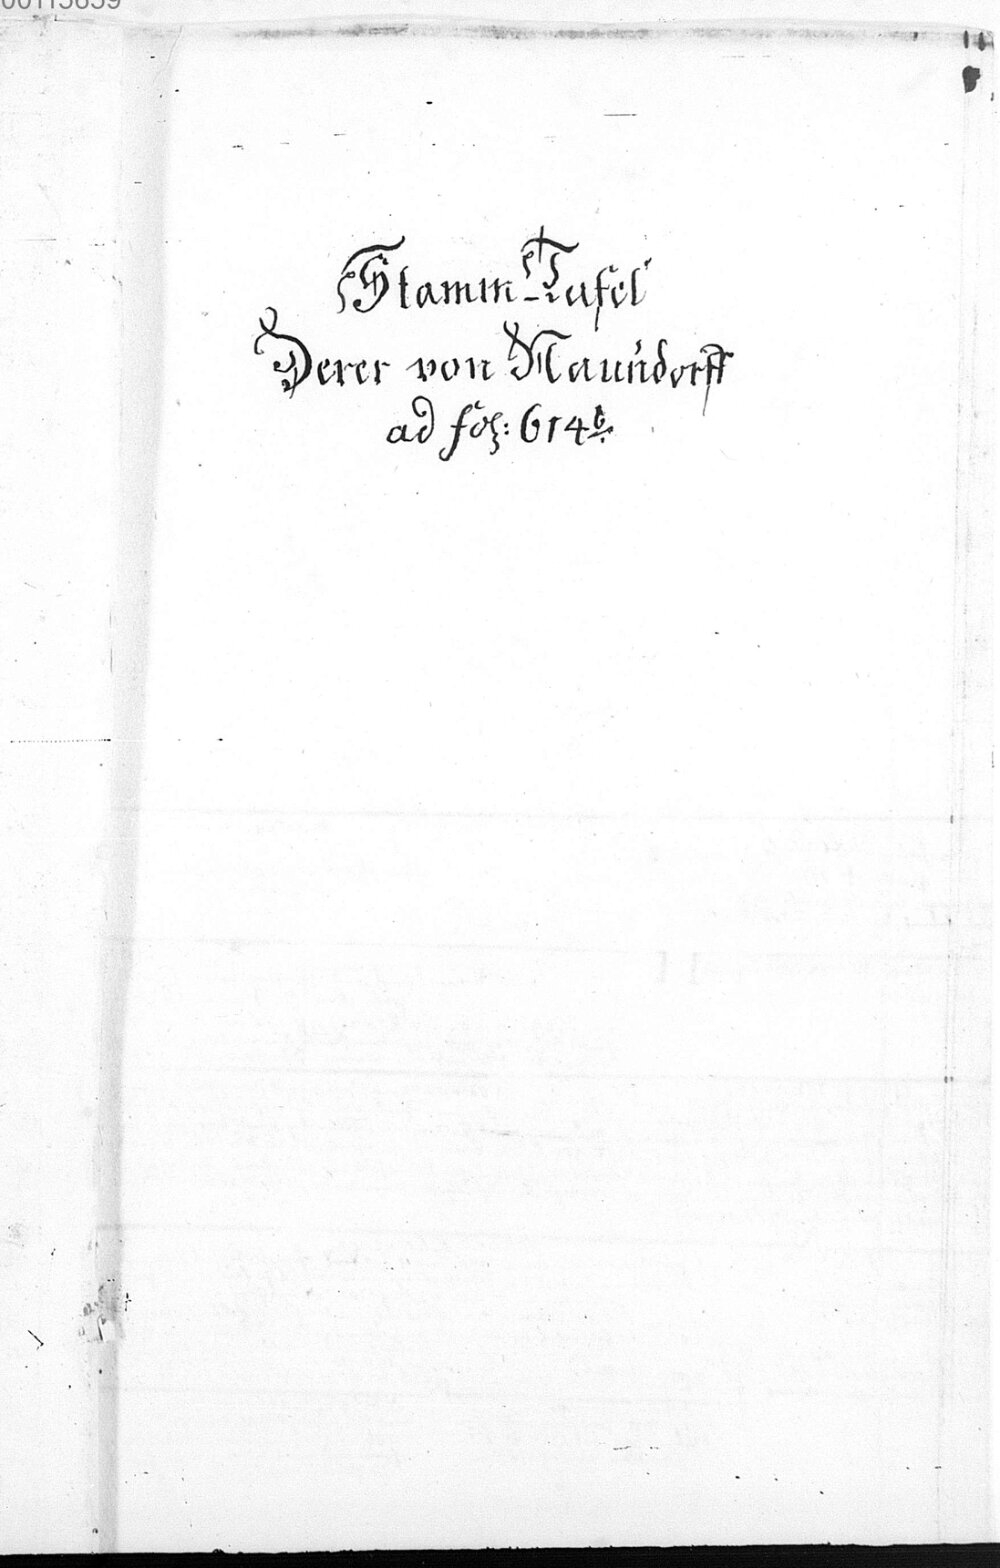 Stamm-Tafel
Derer von Naundorff
ad fol: 614 b.